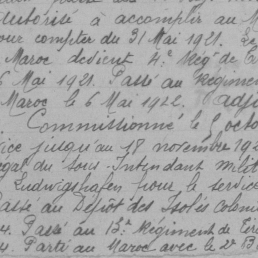 autorité à accomplir au M
our compter du 31 Mai 1921. Le
Maroc devient 4e Rég' de
6 Mai 1921. Passé au Régimen
Maroc le 6 Mai 1922. adju
Commissionné le 8 octo
ice jusqu'au 18 novembre 192
égal du Sous-Intendant milit
Ludwigshafen pour le service
Passé au Dépôt des Isolés Coloni
4. Passé au 13e Régiment de Tir
4. Parti au Maroc avec le 2e B